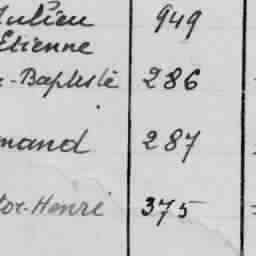 Julien 949
Etienne
-Baptiste 286
mand 287
tor-Henri 375